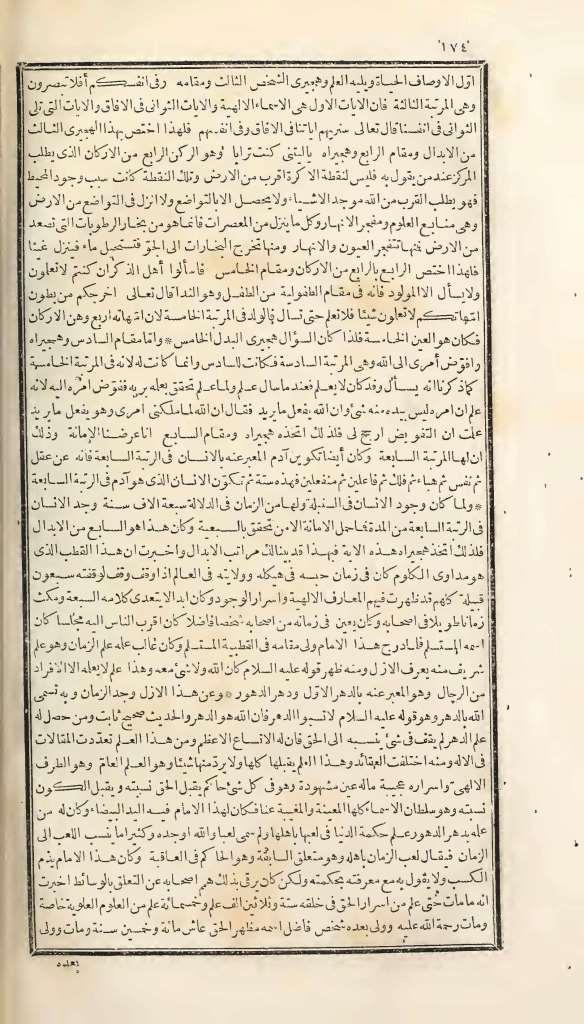 ١٧٤
اول الاوصاف الحياة ويليه العلم وهجيرى الشخص الثالث ومقامه وفى انفسكم أفلا تبصرون
وهى المرتبة الثالثة فان الآيات الاول هى الاسماء الالهية والآيات الثوانى فى الآفاق والآيات التى تلى
الثوانى فى انفسنا قال تعالى سنريهم آياتنا فى الآفاق وفى انفسهم فلهذا اختص بهذا الهجيرى الثالث
من الابدال ومقام الرابع وهجيراه ياليتنى كنت ترابا وهو الركن الرابع من الاركان الذى يطلب
المركز عند من يقول به فليس لنقطة الاكرة اقرب من الارض وتلك النقطة كانت سبب وجود المحيط
فهو يطلب القرب من الله موجد الاشياء ولا يحصل الا بالتواضع ولا انزل فى التواضع من الارض
وهى منابع العلوم ومتفجر الانهار وكل ما ينزل من المعصرات فانما هو من بخار الرطوبات التى تصعد
من الارض فمنها تتفجر العيون والانهار ومنها تخرج البخارات الى الجو فتستحيل ماء فينزل غيثا
فلهذا اختص الرابع بالرابع من الاركان ومقام الخامس فاسألوا أهل الذكر ان كنتم لا تعلمون
ولا يسأل الا المولود فانه فى مقام الطفولية من الطفل وهو الندا قال تعالى اخرجكم من بطون
امهاتكم لا تعلمون شيئا فلا تعلم حتى تسأل فالولد فى المرتبة الخامسة لان امهاته اربع وهن الاركان
فكان هو العين الخامسة فلذا كان السؤال هجيرى البدل الخامس * واما مقام السادس وهجيراه
وافوض أمرى الى الله وهى المرتبة السادسة فكانت للسادس وانما كانت له لانه فى المرتبة الخامسة
كما ذكرنا انه يسأل وقد كان لا يعلم فعند ما سأل علم ولما علم تحقق بعلمه بربه ففوض امره اليه لانه
علم ان امره ليس بيده منه شئ وان الله يفعل ما يريد فقال ان الله لما ملكنى امرى وهو يفعل ما يريد
علمت ان التفويض ارجح لى فلذلك اتخذه هجيراه ومقام السابع انا عرضنا الامانة وذلك
ان لها المرتبة السابعة وكان أيضا تكوين آدم المعبر عنه بالانسان فى الرتبة السابعة فانه عن عقل
ثم نفس ثم هباء ثم فلك ثم فاعلين ثم منفعلين فهذه ستة ثم تكون الانسان الذى هو آدم فى الرتبة السابعة
* ولما كان وجود الانسان فى السنبلة ولها من الزمان فى الدلالة سبعة آلاف سنة وجد الانسان
فى الرتبة السابعة من المدة فما حمل الامانة الا من تحقق بالسبعية وكان هذا هو السابع من الابدال
فلذلك اتخذ هجيراه هذه الآية فهذا قد بينا لك مراتب الابدال واخبرت ان هذا القطب الذى
هو مداوى الكلوم كان فى زمان حبسه فى هيكله وولايته فى العالم اذا وقف وقف لوقفته سبعون
قبيلة كلهم قد ظهرت فيهم المعارف الالهية واسرار الوجود وكان ابدا لا يتعدى كلامه السبعة ومكث
زمانا طويلا فى اصحابه وكان يعين فى زمانه من اصحابه شخصا فاضلا كان اقرب الناس اليه مجلسا كان
اسمه المستسلم فلما درج هذا الامام ولى مقامه فى القطبية المستسلم وكان غالب علمه علم الزمان وهو علم
شريف منه يعرف الازل ومنه ظهر قوله عليه السلام كان الله ولا شئ معه وهذا علم لا يعلمه الا الافراد
من الرجال وهو المعبر عنه بالدهر الاول ودهر الدهور * وعن هذا الازل وجد الزمان وبه تسمى
الله بالدهر وهو قوله عليه السلام لا تسبوا الدهر فان الله هو الدهر والحديث صحيح ثابت ومن حصل له
علم الدهر لم يقف فى شئ ينسبه الى الحق فان له الاتساع الاعظم ومن هذا العلم تعددت المقالات
فى الاله ومنه اختلفت العقائد وهذا العلم يقبلها كلها ولا يرد منها شيئا وهو العلم العام وهو الظرف
الالهى واسراره عجيبة ماله عين مشهودة وهو فى كل شئ حاكم يقبل الحق نسبته ويقبل الكون
نسبته وهو سلطان الاسماء كلها المعينة والمغيبة عنا فكان لهذا الامام فيه اليد البيضاء وكان له من
علمه بدهر الدهور علم حكمة الدنيا فى لعبها باهلها ولم سمى لعبا والله اوجده وكثيرا ما ينسب اللعب الى
الزمان فيقال لعب الزمان باهله وهو متعلق السابقة وهو الحاكم فى العاقبة وكان هذا الامام يذم
الكسب ولا يقول به مع معرفته بحكمته ولكن كان يرقى بذلك همم اصحابه عن التعلق بالوسائط اخبرت
انه ما مات حتى علم من اسرار الحق فى خلقه ستة وثلاثين الف علم وخمسمائة علم من العلوم العلوية خاصة
ومات رحمة الله عليه وولى بعده شخص فاضل اسمه مظهر الحق عاش مائة وخمسين سنة ومات وولى
بعده